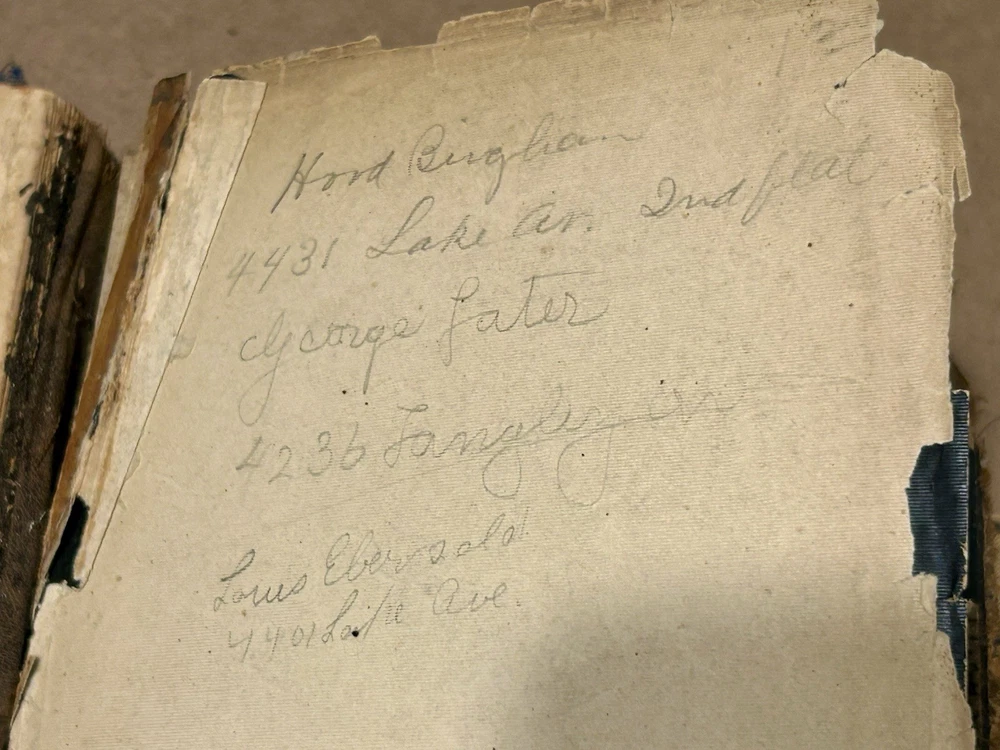 Hord Bingham
4431 Lake Av. 2nd flat
George Gater
4236 Langley Av
Louis Ebersold
4401 Lake Ave.